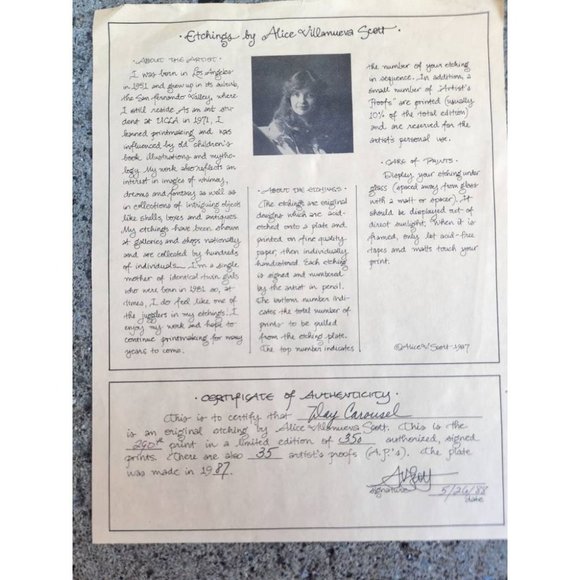 · Etchings by Alice Villanueva Scott ·
· ABOUT THE ARTIST ·
I was born in Los Angeles
in 1951 and grew up in its suburb,
the San Fernando Valley, where
I still reside. As an art stu-
dent at UCLA in 1971, I
learned printmaking and was
influenced by old children's
book illustrations and mytho-
logy. My work also reflects an
interest in images of whimsy,
dreams and fantasy as well as
in collections of intriguing objects
like shells, boxes and antiques.
My etchings have been shown
at galleries and shops nationally
and are collected by hundreds
of individuals. I'm a single
mother of identical twin girls
who were born in 1981 so, at
times, I do feel like one of
the jugglers in my etchings! I
enjoy my work and hope to
continue printmaking for many
years to come.
· ABOUT THE ETCHINGS ·
The etchings are original
designs which are acid-
etched onto a plate and
printed on fine quality
paper, then individually
handcolored. Each etching
is signed and numbered
by the artist in pencil.
The bottom number indi-
cates the total number of
prints to be pulled
from the etching plate.
The top number indicates
the number of your etching
in sequence. In addition, a
small number of "Artist's
Proofs" are printed (usually
10% of the total edition)
and are reserved for the
artist's personal use.
· CARE OF PRINTS ·
Display your etching under
glass (spaced away from glass
with a matt or spacer). It
should be displayed out of
direct sunlight. When it is
framed, only let acid-free
tapes and matts touch your
print.
©Alice V. Scott 1987
· CERTIFICATE OF AUTHENTICITY ·
This is to certify that Day Carousel
is an original etching by Alice Villanueva Scott. This is the
290th print in a limited edition of 350 authorized, signed
prints. There are also 35 artist's proofs (A.P.'s). The plate
was made in 1987.
AVScott
signature
5/26/88
date